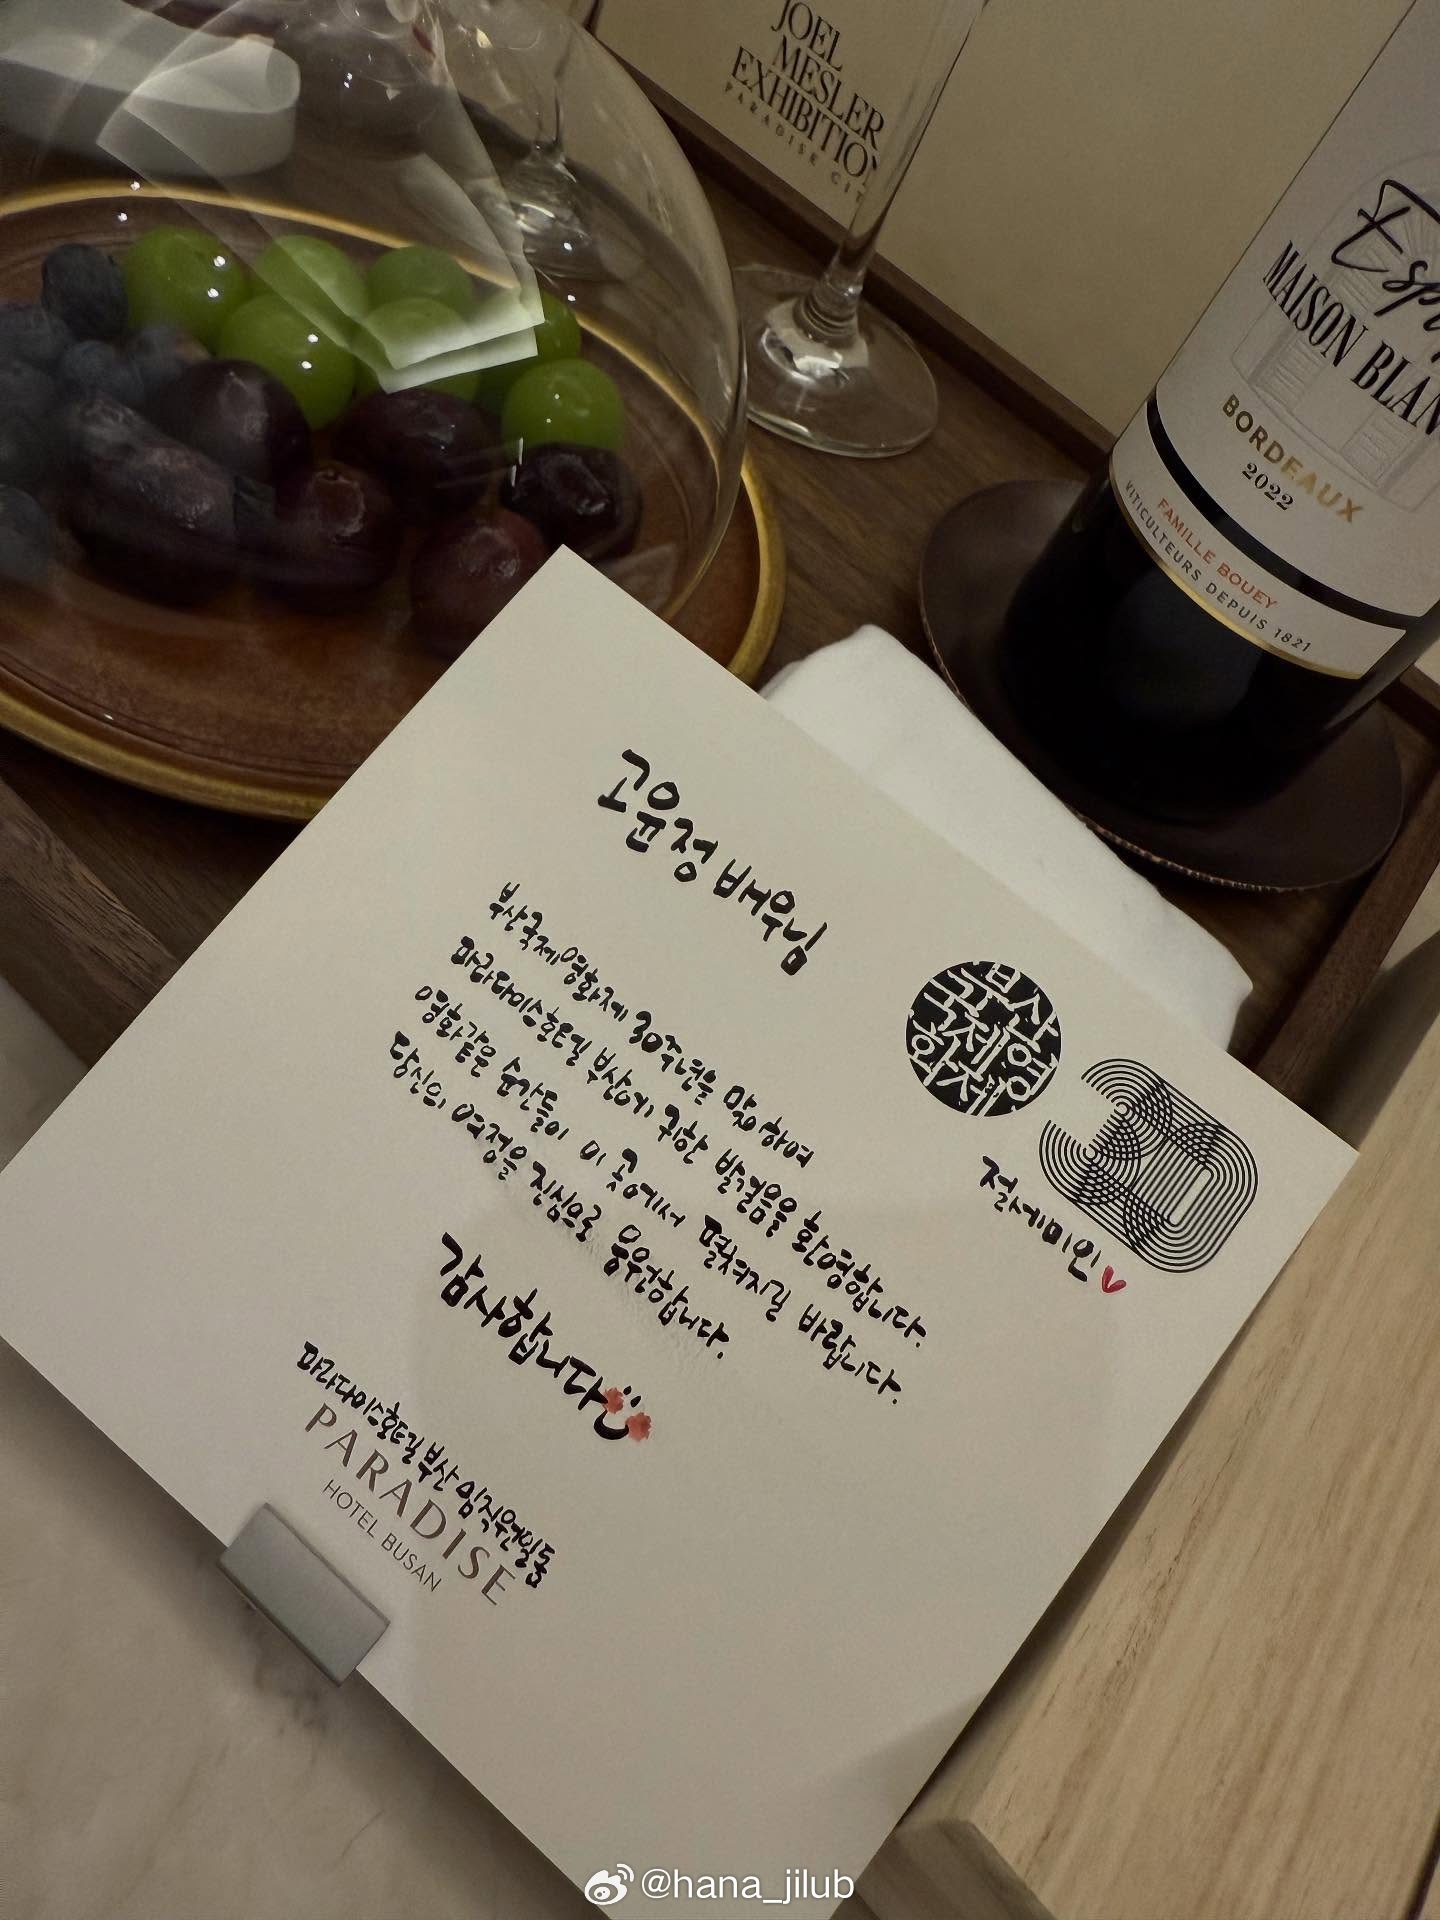 JOEL
MESLER
EXHIBITION
PARADISE CIT
Esp
MAISON BLAN
BORDEAUX
2022
FAMILLE BOUEY
VITICULTEURS DEPUIS 1821
고윤정 배우님
부산국제영화제 30주년을 맞이하여
파라다이스호텔 부산에 귀한 발걸음을 환영합니다.
영화같은 순간들이 이 곳에서 펼쳐지길 바랍니다.
당신의 여정을 진심으로 응원합니다.
감사합니다
부산
국제영
화제
30
절세미인
파라다이스호텔 부산 임직원일동
PARADISE
HOTEL BUSAN
@hana_jilub